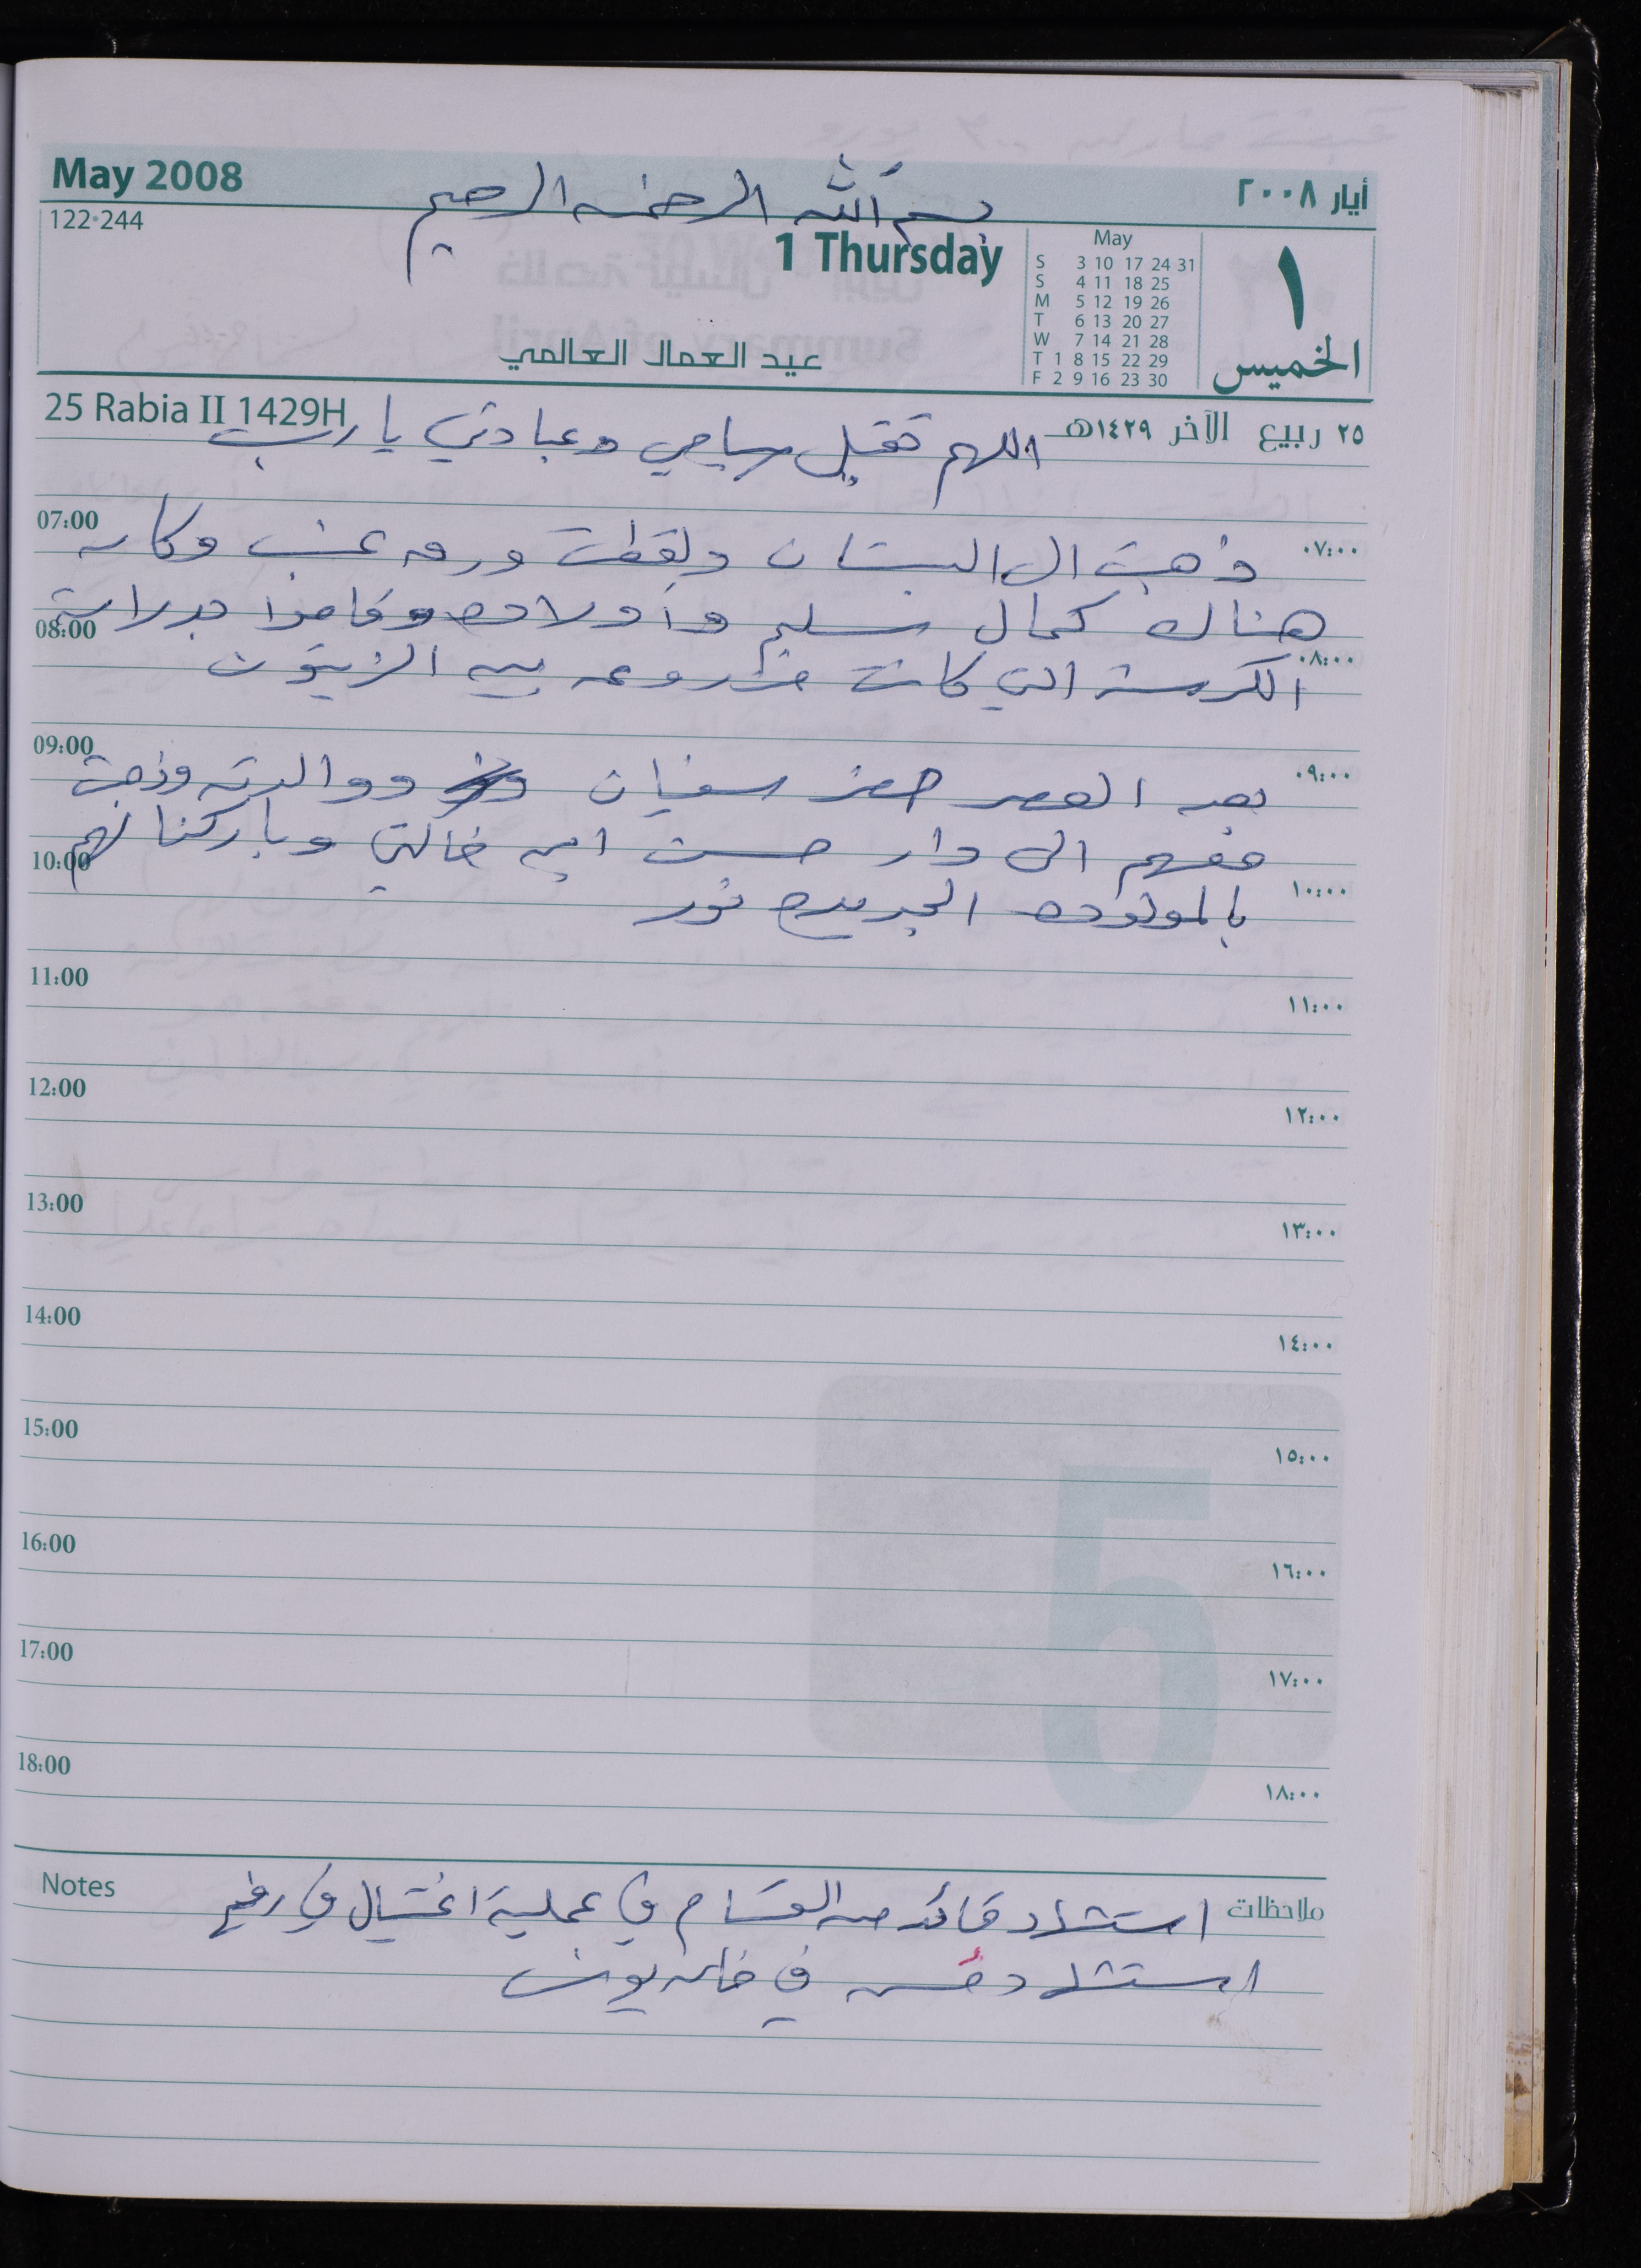 May 2008
أيار ٢٠٠٨
بسم الله الرحمن الرحيم
122-244
1 Thursday
May
S 3 10 17 24 31
S 4 11 18 25
M 5 12 19 26
T 6 13 20 27
W 7 14 21 28
T 1 8 15 22 29
F 2 9 16 23 30
١
الخميس
عيد العمال العالمي
25 Rabia II 1429H
٢٥ ربيع الآخر ١٤٢٩هـ
اللهم تقبل صيامي وعبادتي يا رب
07:00 ٠٧:٠٠
ذهبت الى البستان ولقطت ورق عنب وكان
هناك كمال سليم وأولاده وقاموا بدراسة
08:00 ٠٨:٠٠
الكرسنة التي كانت مزروعه بين الزيتون
09:00 ٠٩:٠٠
بعد العصر حضر سفيان ووالدته وذهبت
معهم الى دار حسن ابن خالتي وباركنا لهم
10:00 ١٠:٠٠
بالمولوده الجديده نور
11:00 ١١:٠٠
12:00 ١٢:٠٠
13:00 ١٣:٠٠
14:00 ١٤:٠٠
15:00 ١٥:٠٠
16:00 ١٦:٠٠
17:00 ١٧:٠٠
18:00 ١٨:٠٠
5
Notes ملاحظات
استشهاد قائد من القسام في عملية اغتيال في رفح
استشهاد مسن في خان يونس